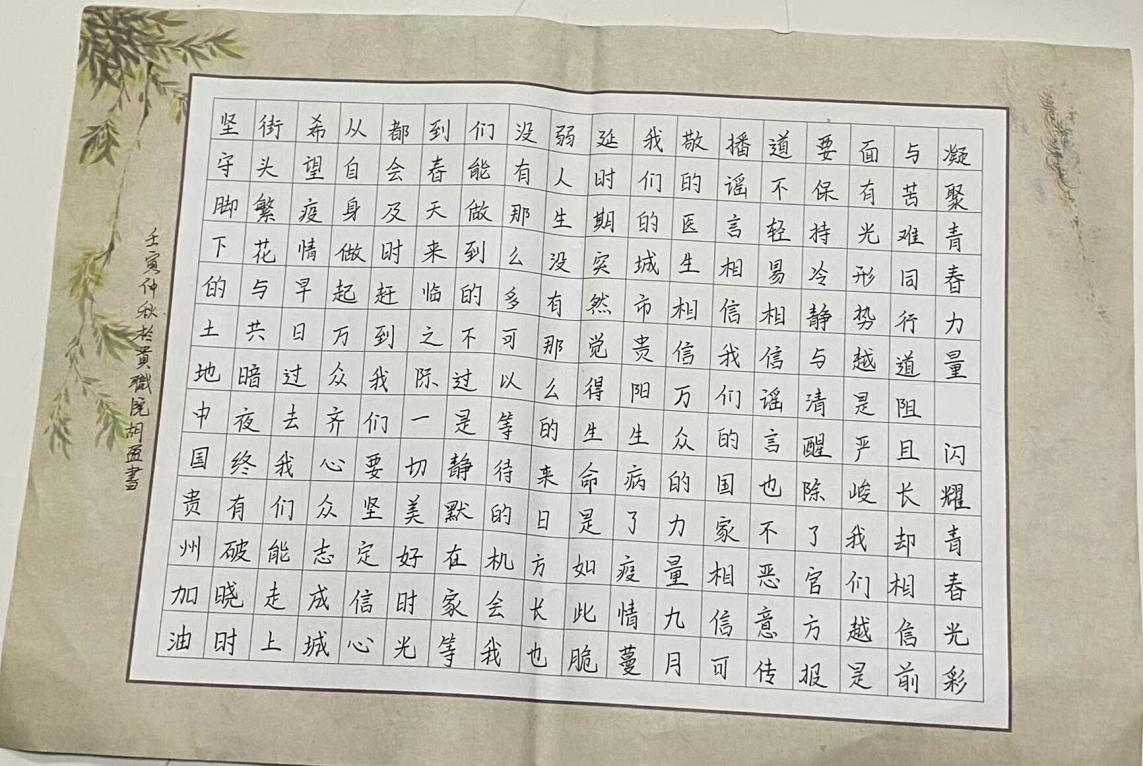 凝聚青春力量 闪耀青春光彩
与苦难同行道阻且长却相信前
面有光形势越是严峻我们越是
要保持冷静与清醒除了官方报
道不轻易相信谣言也不恶意传
播谣言相信我们的国家相信可
敬的医生相信万众的力量九月
我们的城市贵阳生病了疫情蔓
延时期突然觉得生命是如此脆
弱人生没有那么的来日方长也
没有那么多可以等待的机会我
们能做到的不过是静默在家等
到春天来临之际一切美好时光
都会及时赶到我们要坚定信心
从自身做起万众齐心众志成城
希望疫情早日过去我们能走上
街头繁花与共暗夜终有破晓时
坚守脚下的土地中国贵州加油
壬寅仲秋於貴職院胡書